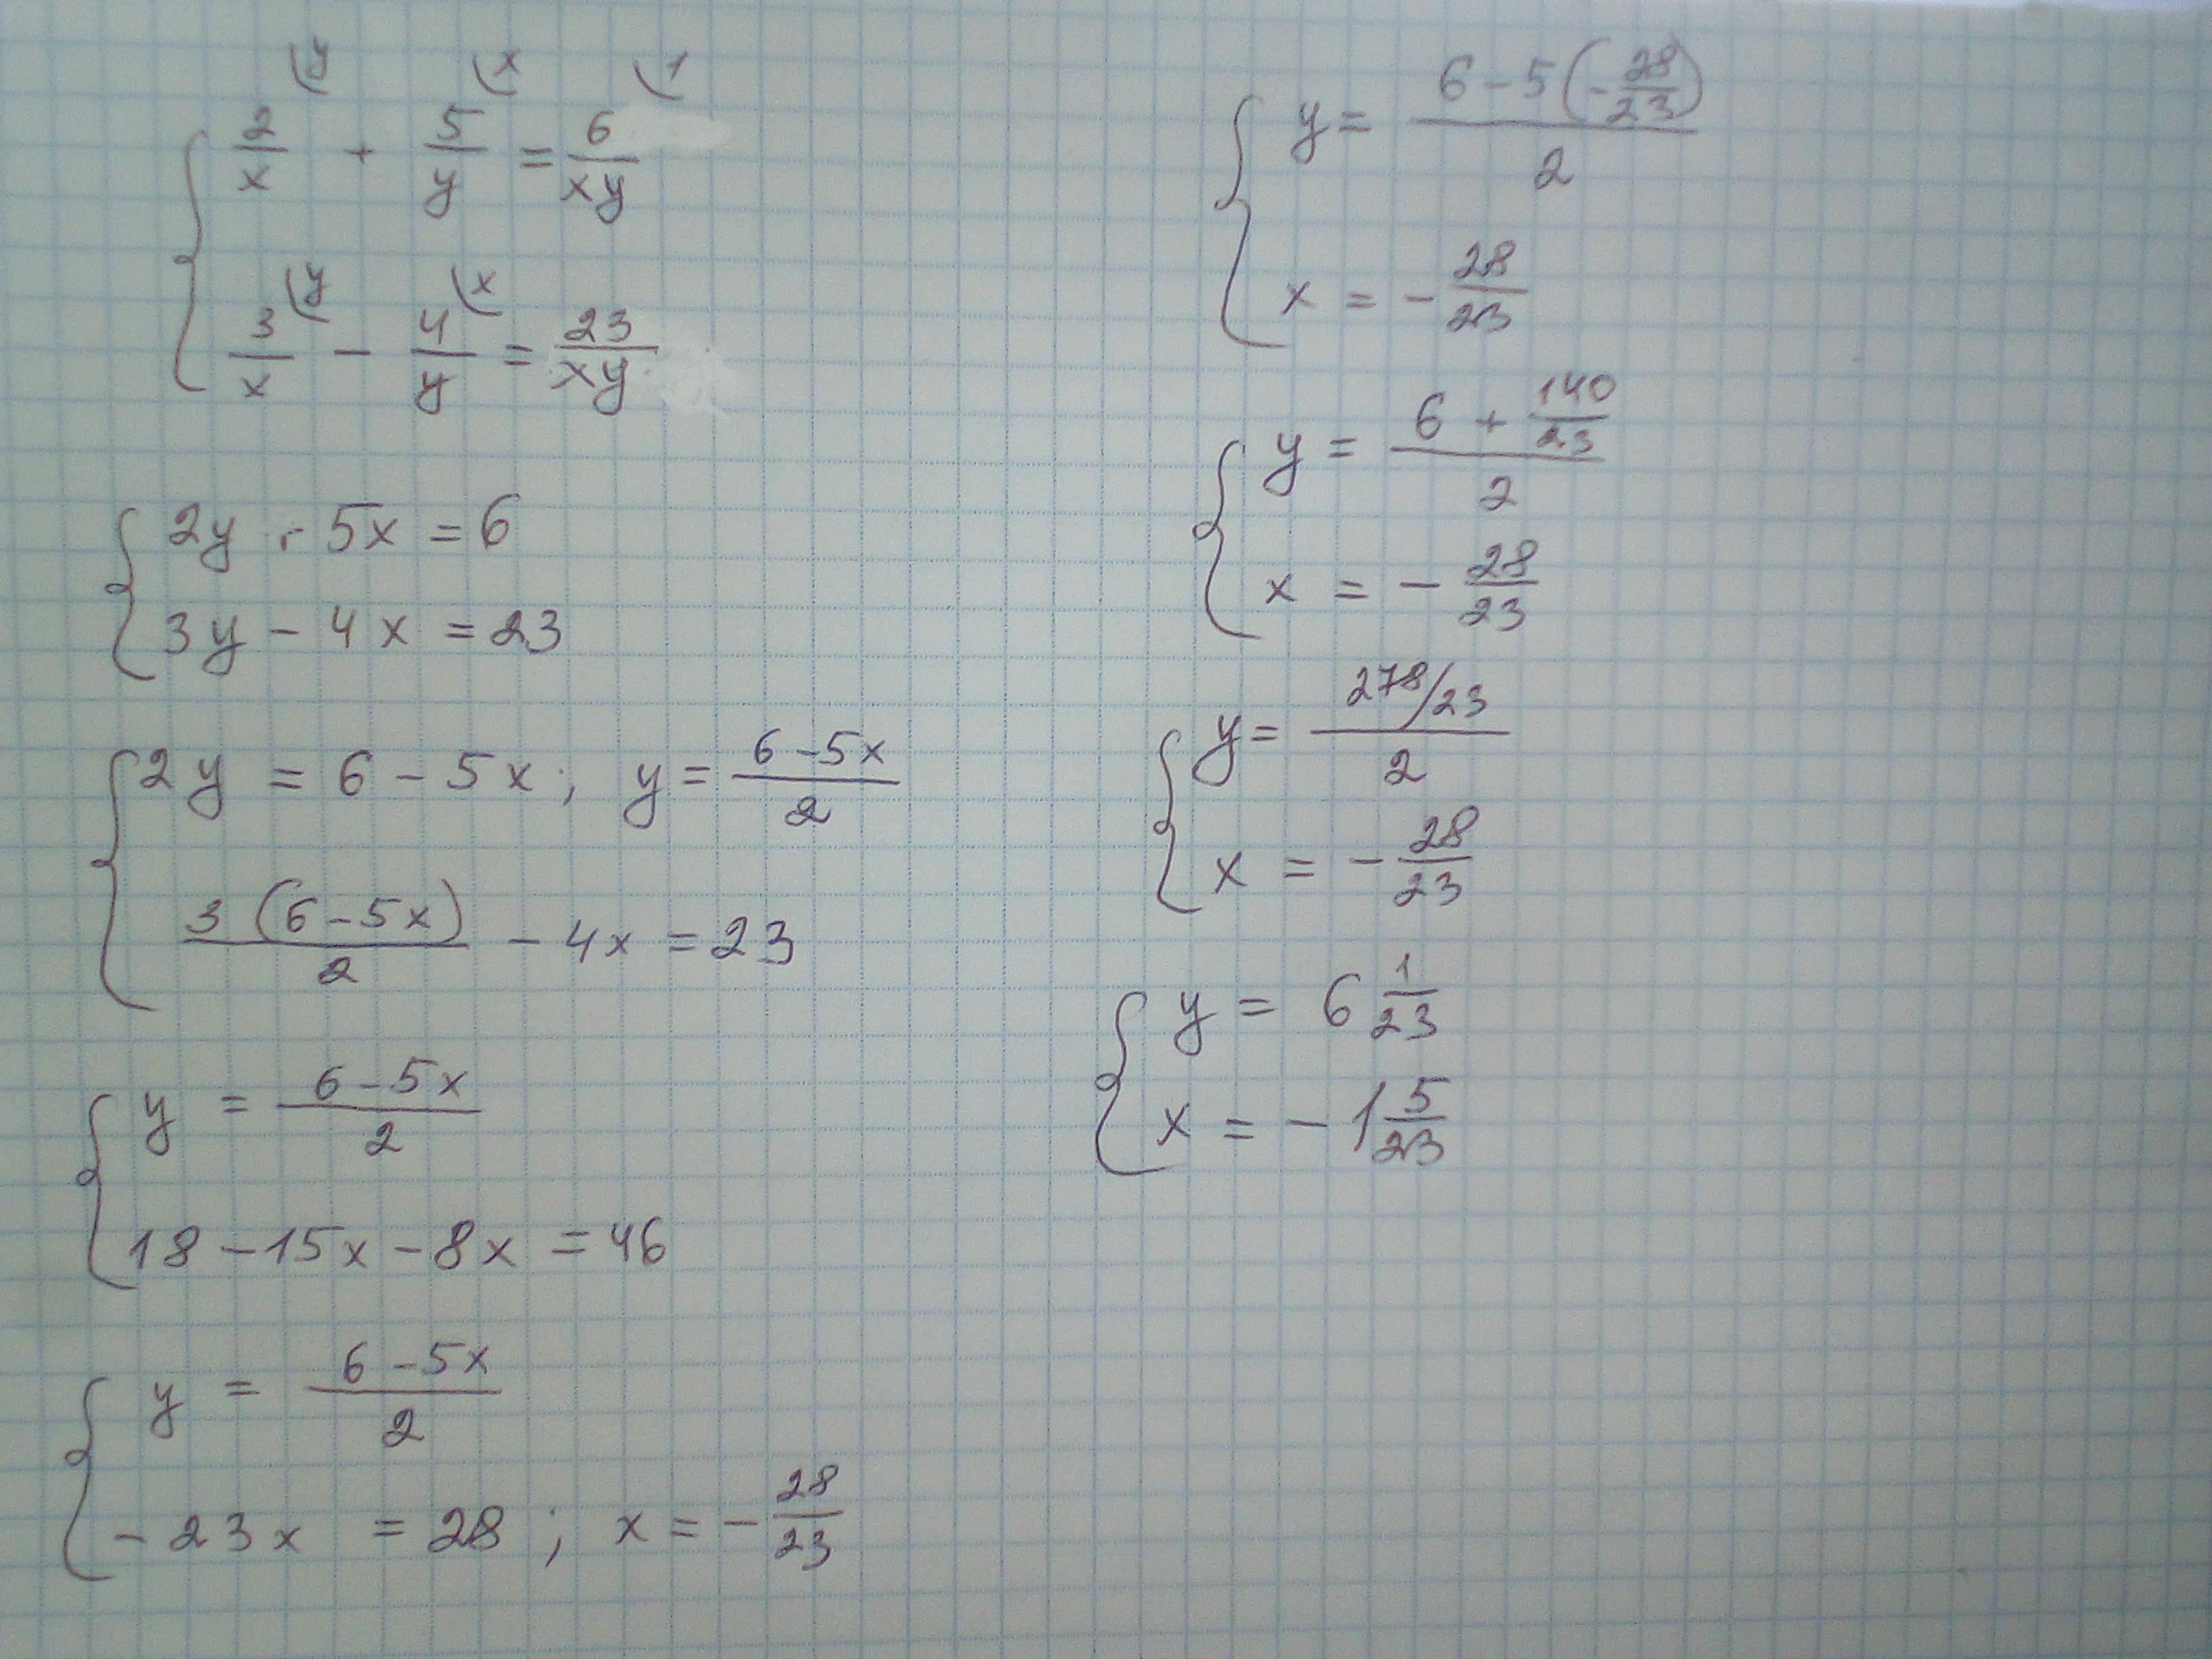 2/x (y + 5/y (x = 6/xy (1
3/x (y − 4/y (x = 23/xy
2y + 5x = 6
3y − 4x = 23
2y = 6 − 5x; y = (6 − 5x)/2
3(6 − 5x)/2 − 4x = 23
y = (6 − 5x)/2
18 − 15x − 8x = 46
y = (6 − 5x)/2
− 23x = 28; x = − 28/23
y = (6 − 5(−28/23))/2
x = − 28/23
y = (6 + 140/23)/2
x = − 28/23
y = (278/23)/2
x = − 28/23
y = 6 1/23
x = − 1 5/23